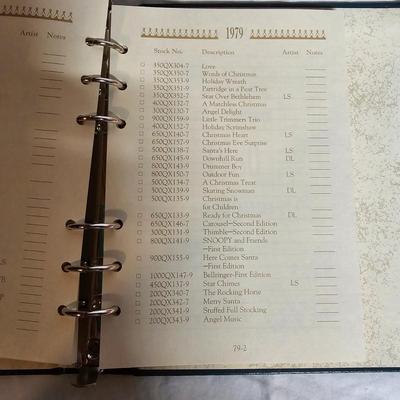 Artist Notes
LS
1979
Stock No. Description Artist Notes
350QX304-7 Love
350QX350-7 Words of Christmas
350QX353-9 Holiday Wreath
350QX351-9 Partridge in a Pear Tree
350QX352-7 Star Over Bethlehem LS
400QX132-7 A Matchless Christmas
400QX133-9 Angel Delight
900QX159-9 Little Trimmers Trio
400QX152-7 Holiday Scrimshaw
650QX140-7 Christmas Heart LS
650QX157-9 Christmas Eve Surprise
500QX138-7 Santa's Here LS
650QX145-9 Downhill Run DL
800QX143-9 Drummer Boy
800QX150-7 Outdoor Fun LS
500QX134-7 A Christmas Treat
500QX139-9 Skating Snowman DL
500QX135-9 Christmas is
for Children
650QX133-9 Ready for Christmas DL
650QX146-7 Carousel—Second Edition
300QX131-9 Thimble—Second Edition
800QX141-9 SNOOPY and Friends
—First Edition
900QX155-9 Here Comes Santa
—First Edition
1000QX147-9 Bellringer-First Edition
450QX137-9 Star Chimes LS
200QX340-7 The Rocking Horse
200QX342-7 Merry Santa
200QX341-9 Stuffed Full Stocking
200QX343-9 Angel Music
79-2